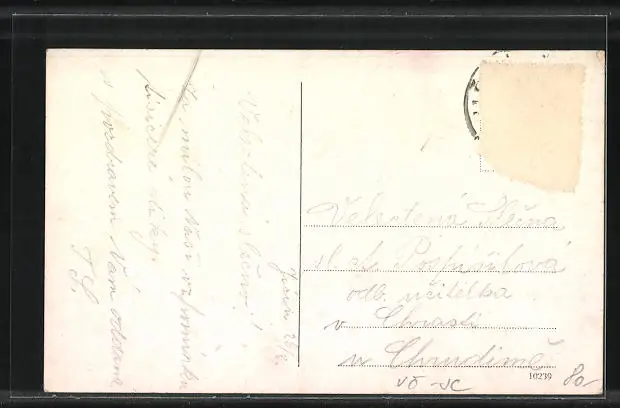 Velectěná slečno!
Za milou Vaši vzpomínku
písečné díky.
s pozdravem Vám oddaná
T. S.
Velectěná Slečna
sl. Pospíšilová
odb. učitelka
v Chrasti
u Chrudimě
10239
80-